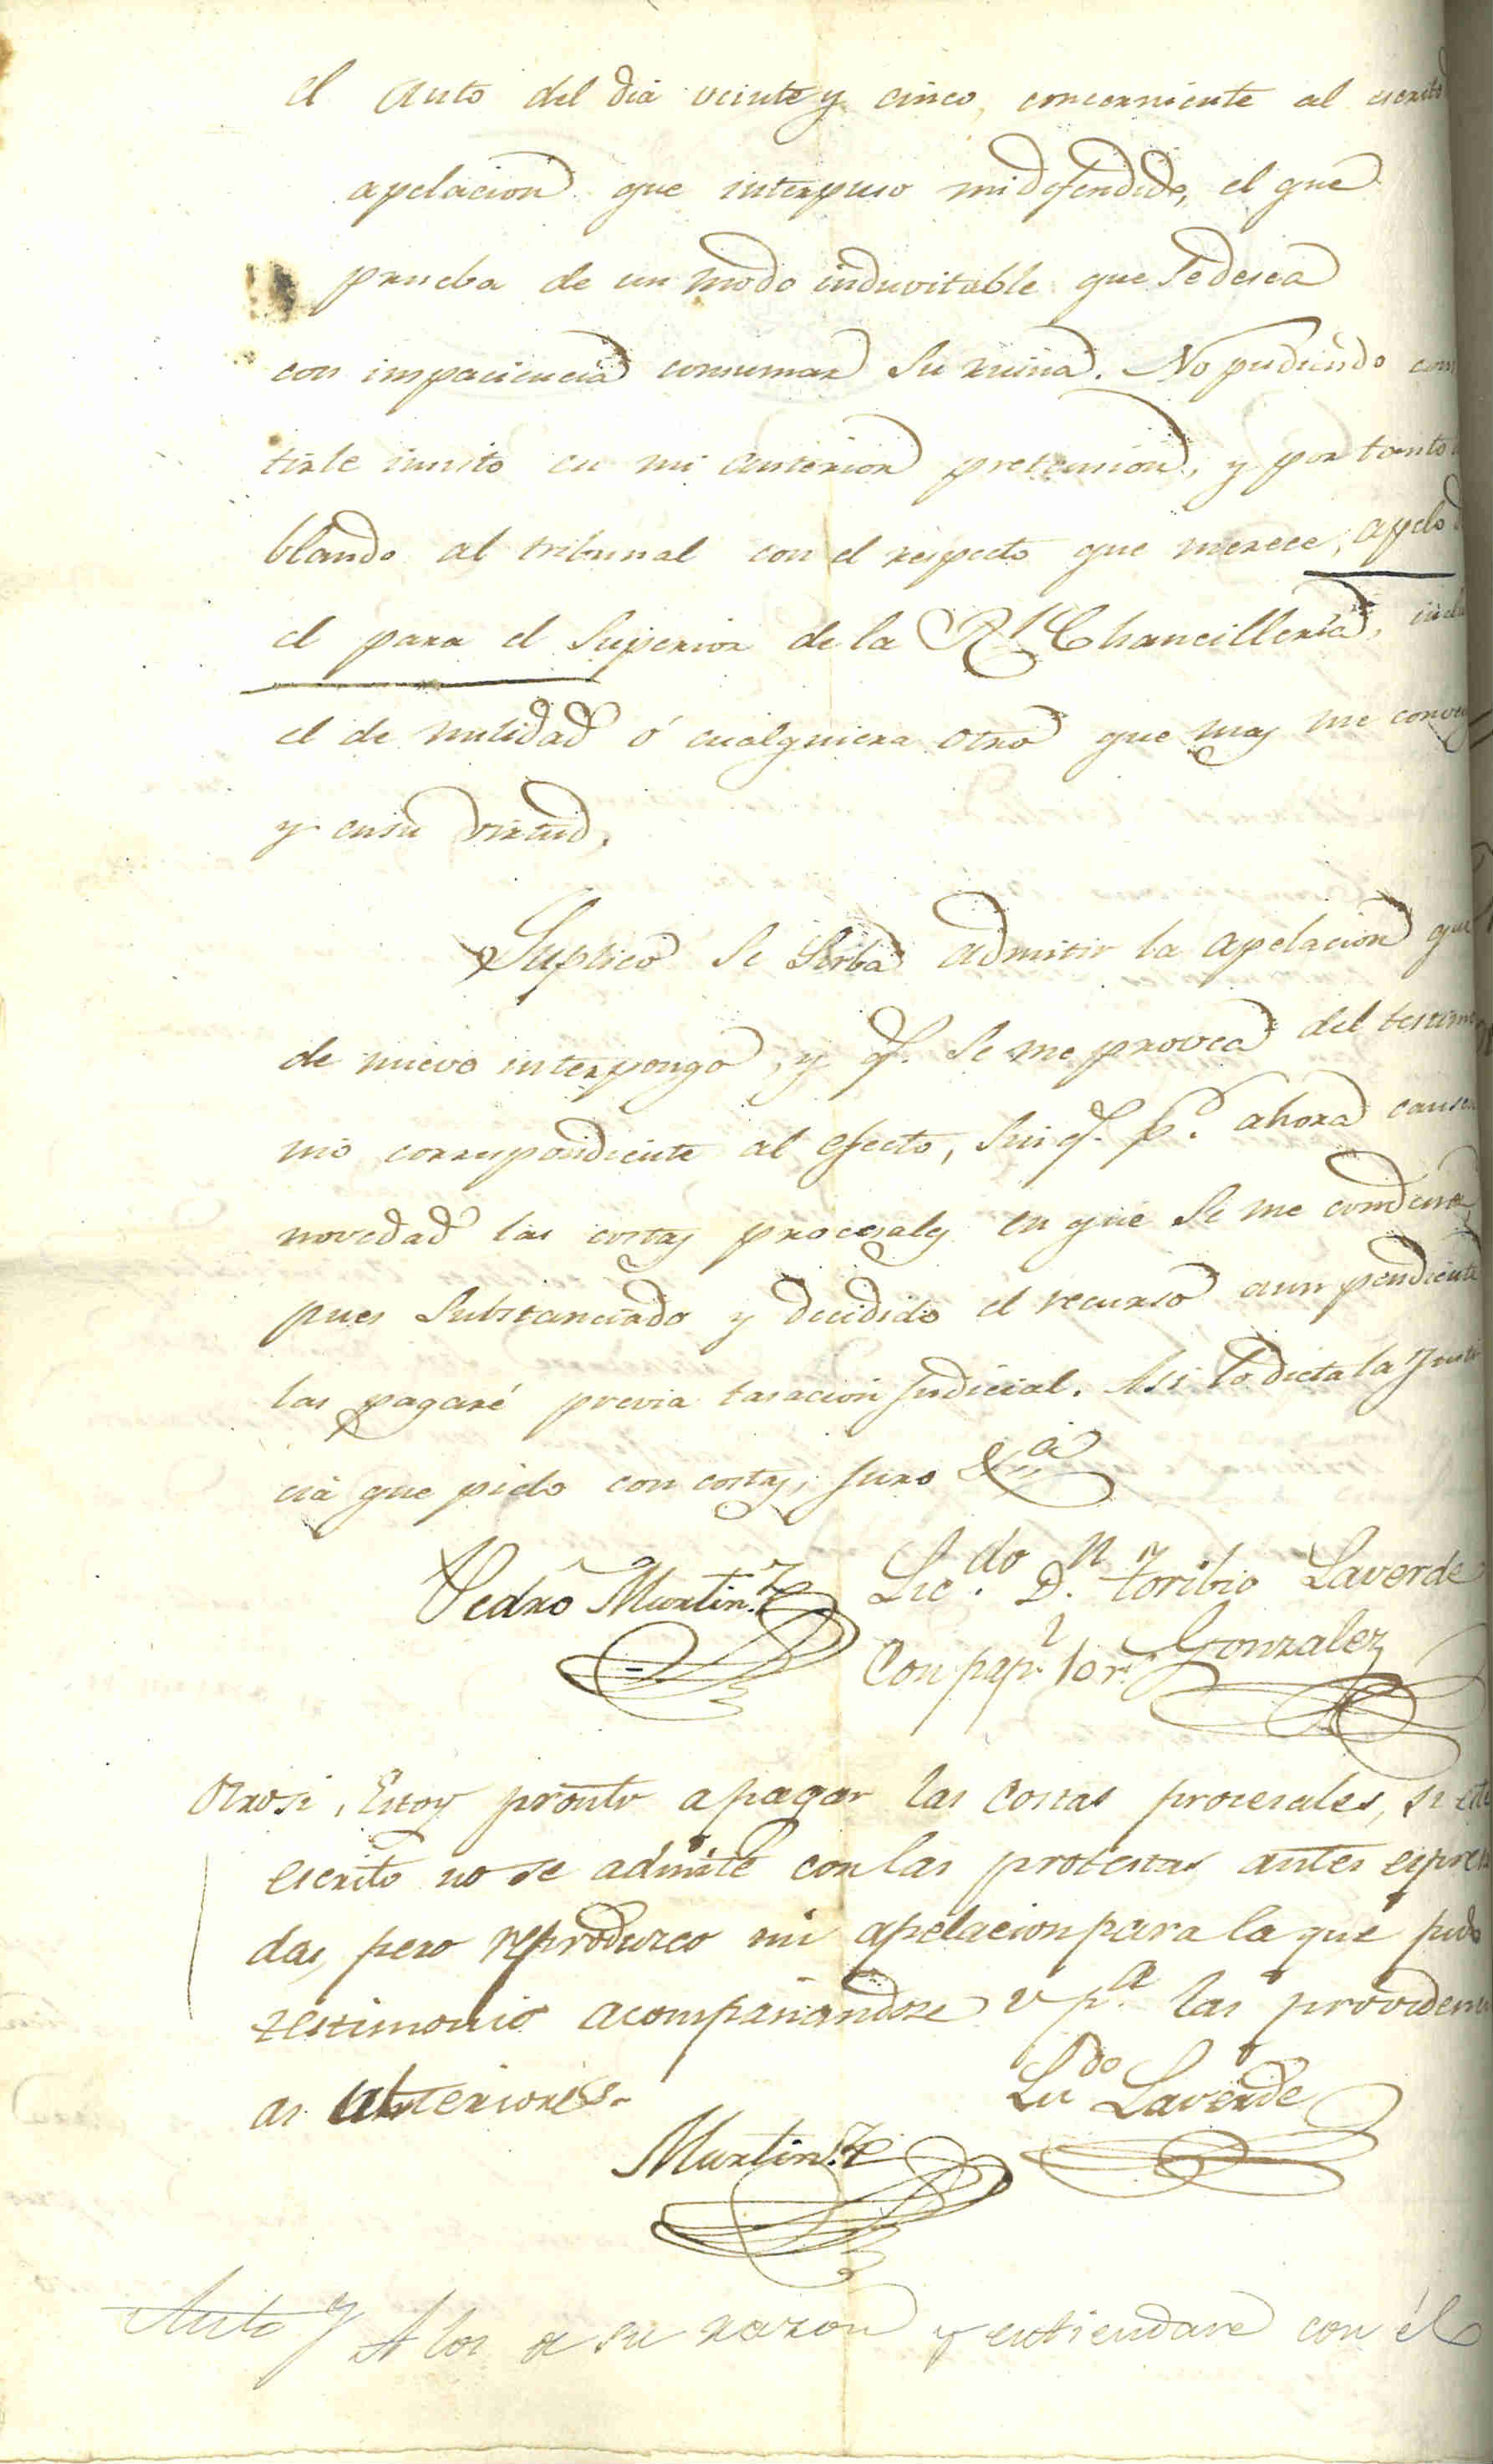 el Auto del dia veinte y cinco, concerniente al escrito
apelacion que interpuso mi defendido, el que
prueba de un modo induvitable que se desea
con impaciencia consumar su ruina. No pudiendo con
tirle insisto en mi anterior pretension, y por tanto
blando al tribunal con el respecto que merece, apelo
el para el Superior de la Rl. Chancilleria,
el de nulidad ó cualquiera otro que mas me conven
y en su virtud.
Suplico se sirba admitir la apelacion que
de nuevo interpongo, y q. se me provea del testimo
nio correspondiente al efecto, sin q. p.r ahora causen
novedad las costas procesales en que se me condena
pues substanciado y decidido el recurso aun pendiente
las pagaré previa tasacion judicial. Asi lo dicta la Justi
cia que pido con costas, juro &.a
Pedro Martin.z Lic.do D.n Toribio Laverde
Gonzalez
Otrosi, Estoy pronto a pagar las costas procesales, si este
escrito no se admite con las protestas antes espresa
das, pero reproduzco mi apelacion para la que pido
testimonio acompañandose las providenci
as anteriores.
Lic.do Laverde
Martin.z
Auto A los de su razon y entiendase con él